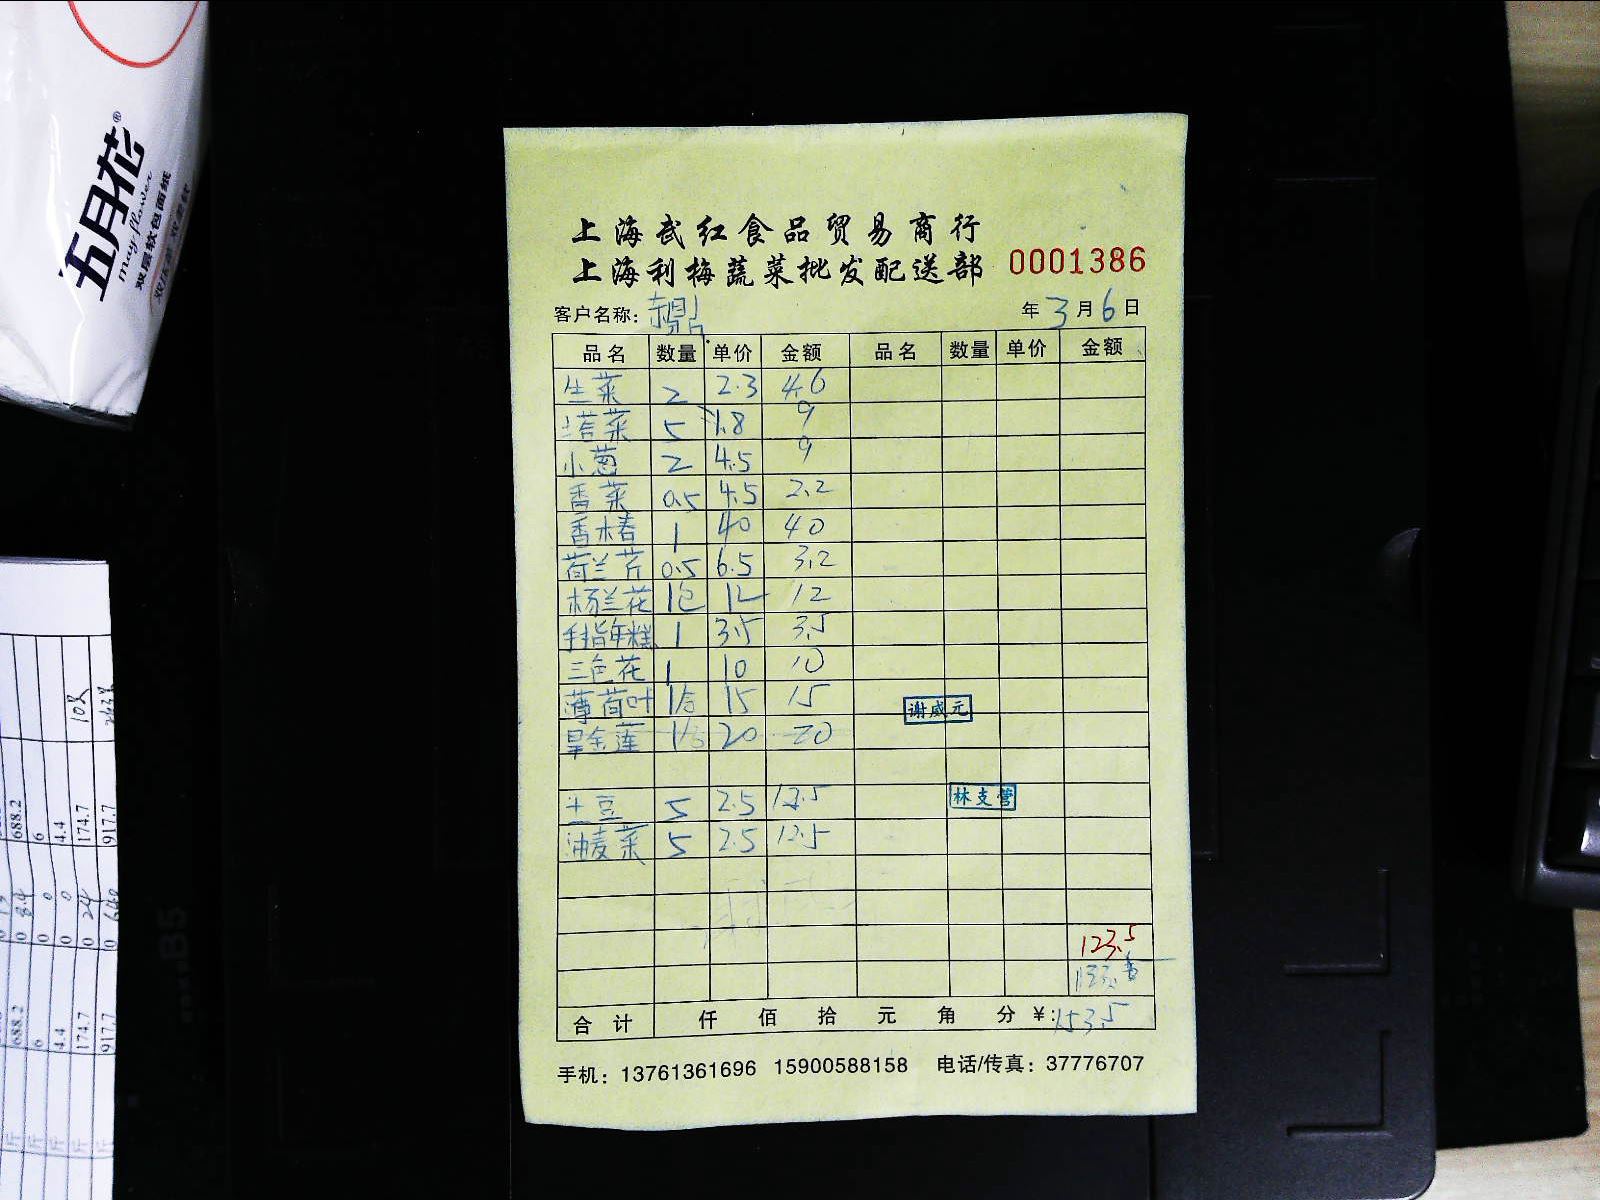 五月花®
May flower
双层软包面纸
上海武红食品贸易商行
上海利梅蔬菜批发配送部 0001386
客户名称: 赤鼎 年 3 月 6 日
品名 数量 单价 金额 品名 数量 单价 金额
生菜 2 2.3 4.6
塔菜 5 1.8 9
小葱 2 4.5 9
香菜 0.5 4.5 2.2
香椿 1 40 40
荷兰芹 0.5 6.5 3.2
杨兰花 1包 12 12
手指年糕 1 3.5 3.5
三色花 1 10 10
薄荷叶 1合 15 15
谢威元
旱金莲 1合 20 20
土豆 5 2.5 12.5
林支营
油麦菜 5 2.5 12.5
123.5
合计 仟 佰 拾 元 角 分 ¥: 153.5
手机: 13761361696 15900588158 电话/传真: 37776707
688.2
6
4.4
174.7
917.7
688.2
6
4.4
174.7
917.7
B5